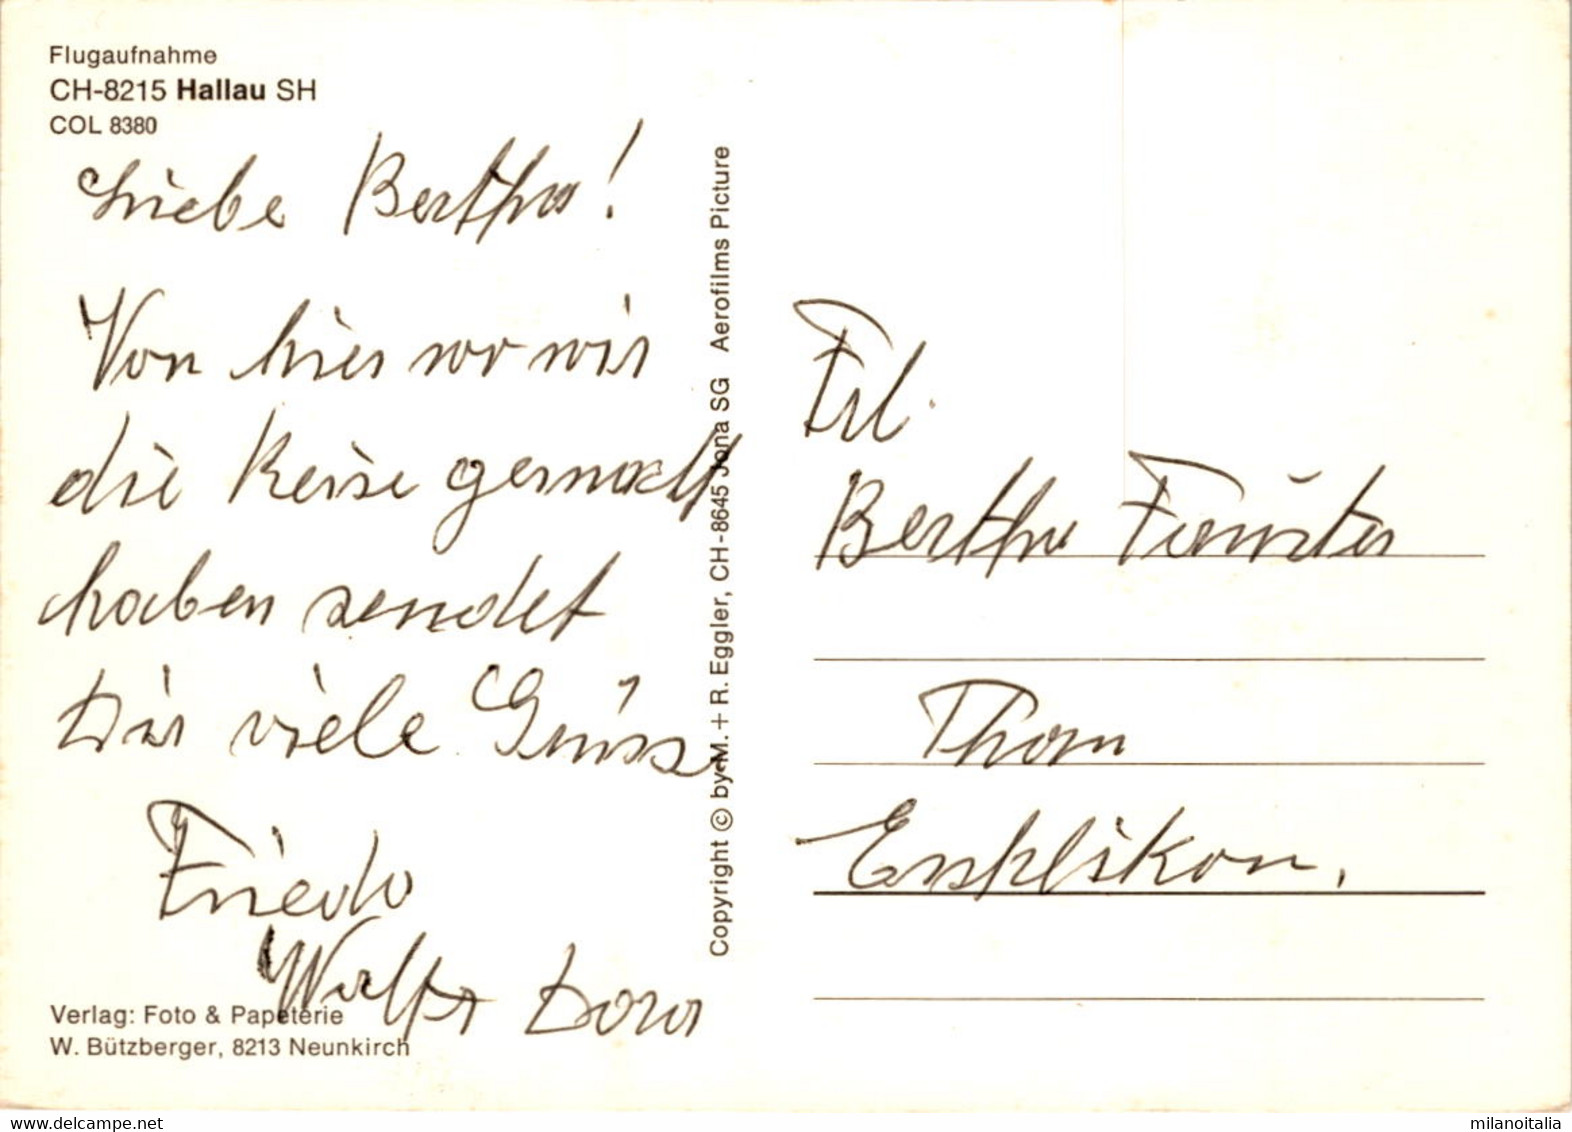 Flugaufnahme
CH-8215 Hallau SH
COL 8380
Liebe Bertha!
Von hier wo wir
die Reise gemacht
haben sendet
Dir viele Grüsse
Frieda
Walter Dora
Verlag: Foto & Papeterie
W. Bützberger, 8213 Neunkirch
Copyright © by M. + R. Eggler, CH-8645 Jona SG Aerofilms Picture
Frl.
Bertha
Thom
milanoitalia